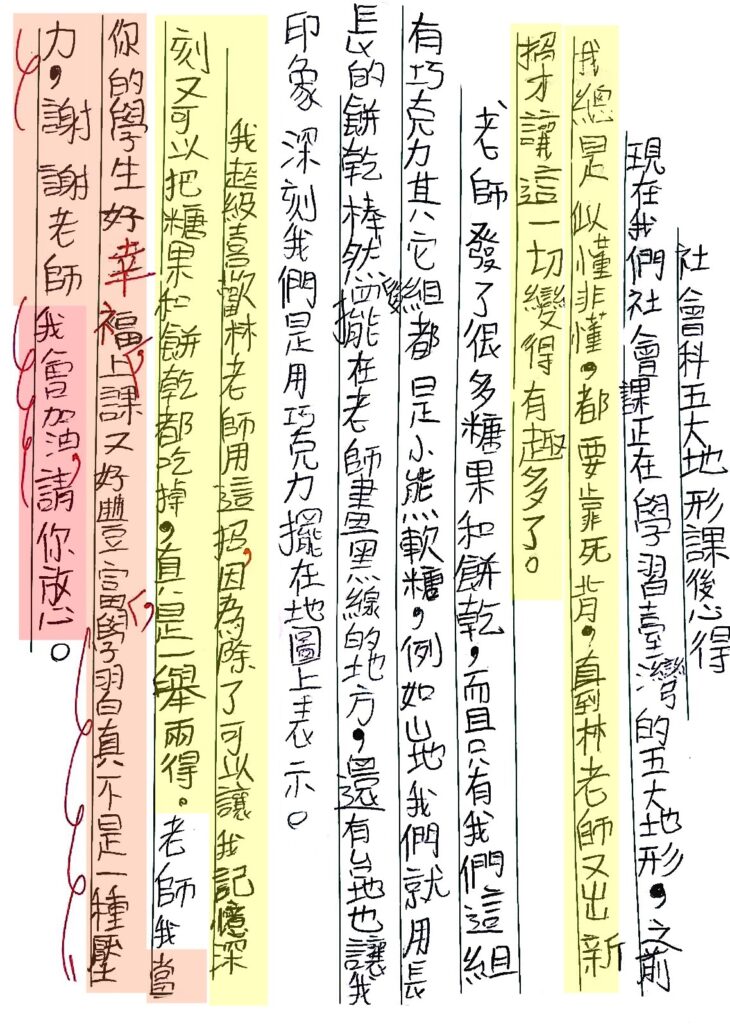 社會科五大地形課後心得
現在我們社會課正在學習臺灣的五大地形，之前
我總是似懂非懂，都要靠死背，直到林老師又出新
招才讓這一切變得有趣多了。
老師發了很多糖果和餅乾，而且只有我們這組
有巧克力其它組都是小熊軟糖，例如山地我們就用長
長的餅乾棒然後擺在老師畫黑線的地方，還有台地也讓我
印象深刻我們是用巧克力擺在地圖上表示。
我超級喜歡林老師用這招，因為除了可以讓我記憶深
刻又可以把糖果和餅乾都吃掉，真是一舉兩得。老師我當
你的學生好幸福，上課又好豐富，學習真不是一種壓
力，謝謝老師我會加油，請你放心。